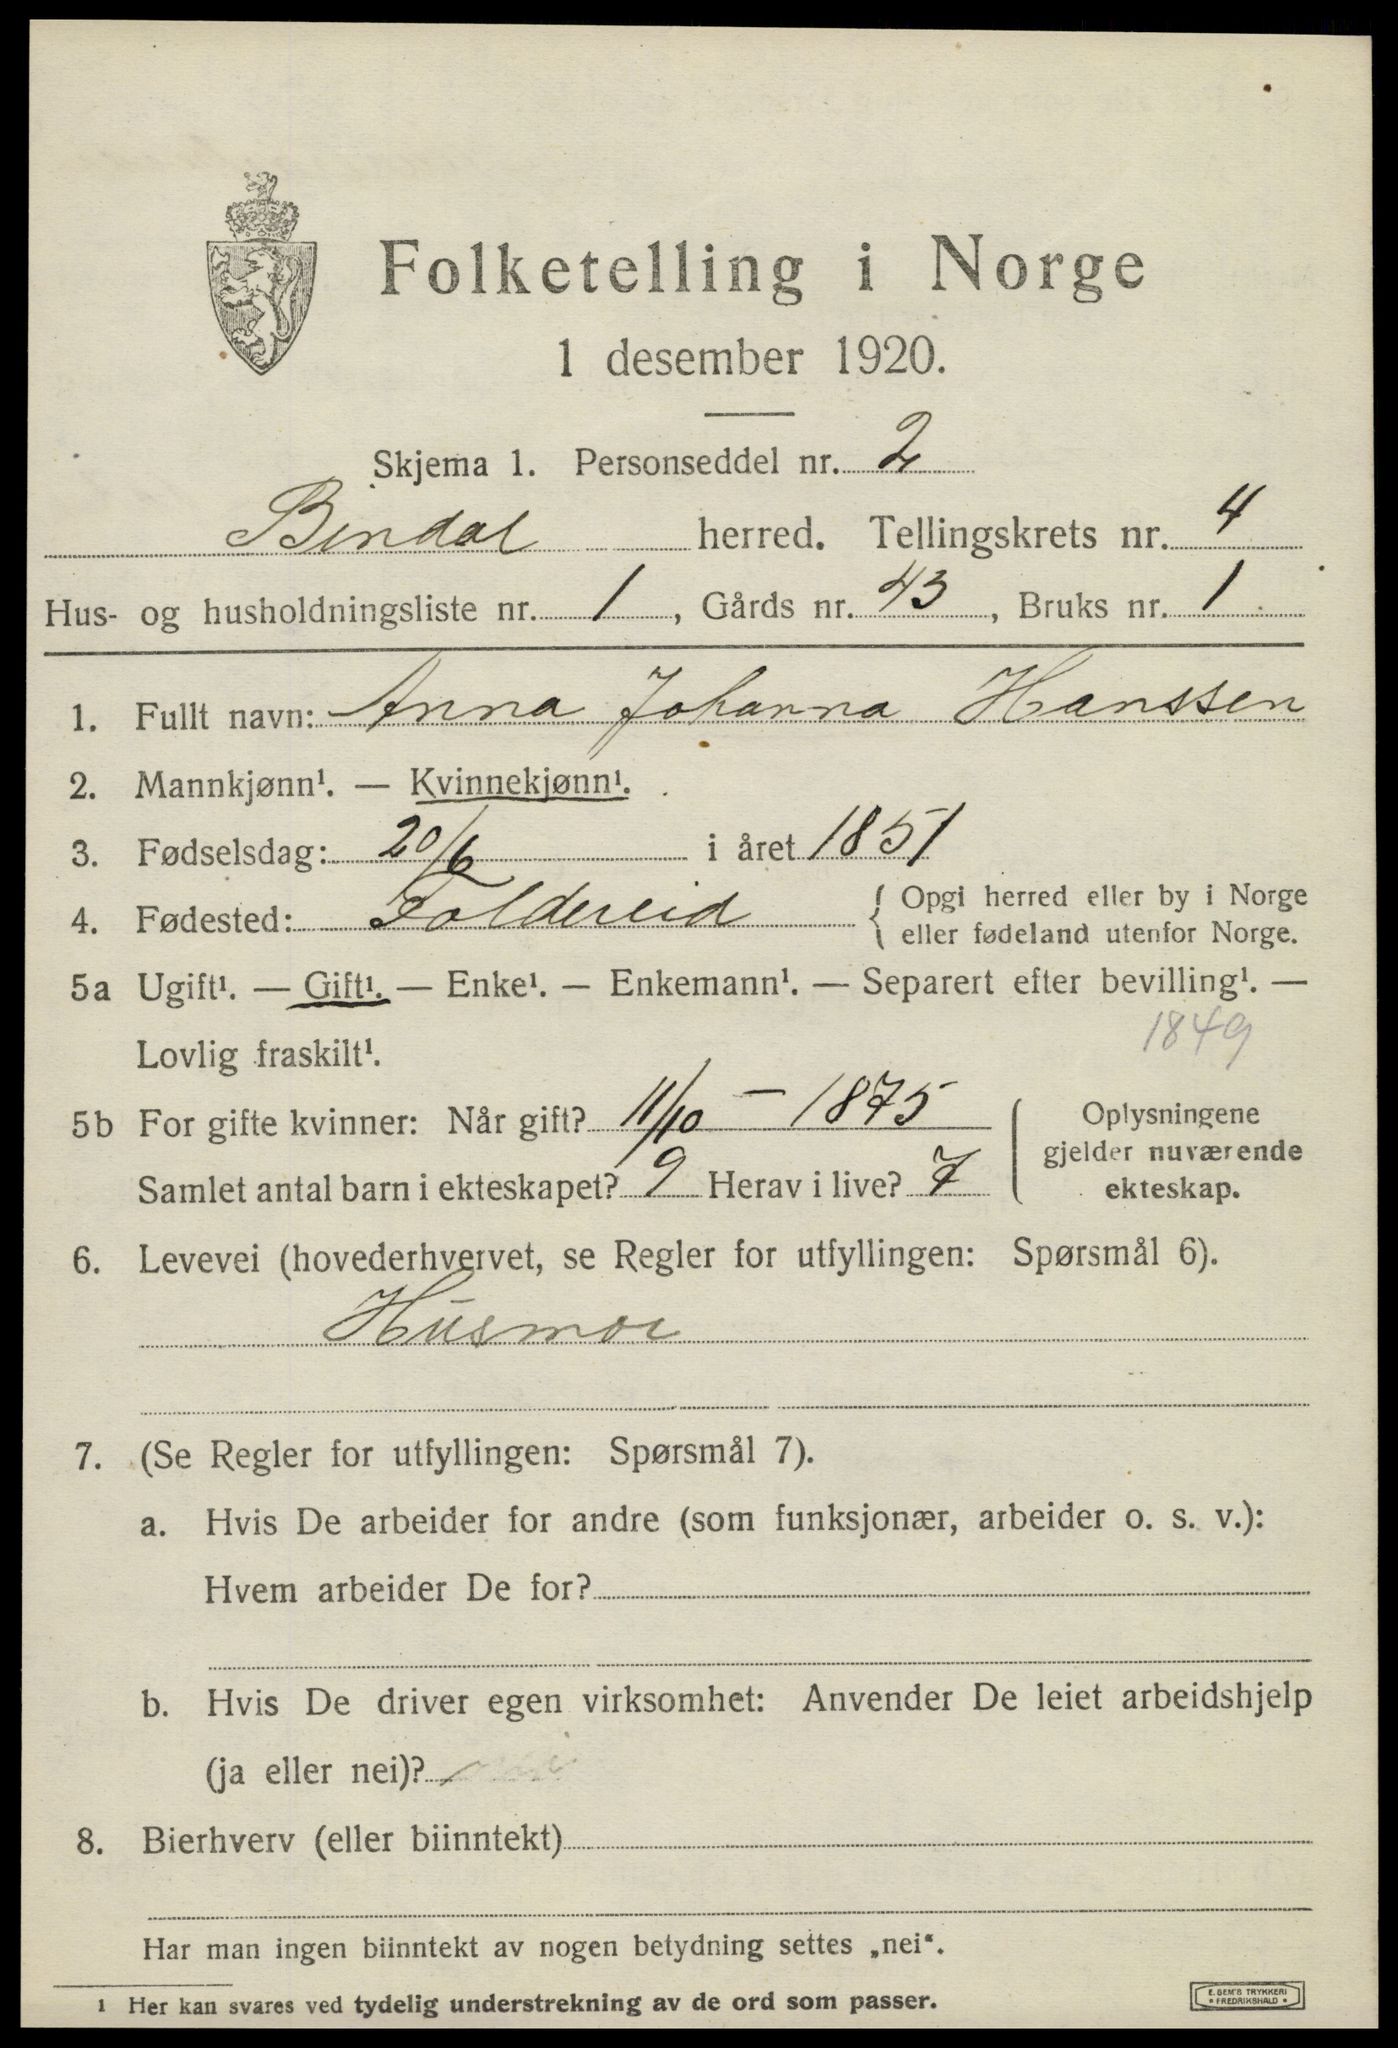 Folketelling i Norge
1 desember 1920.
Skjema 1. Personseddel nr. 2
Bindal herred. Tellingskrets nr. 4
Hus- og husholdningsliste nr. 1, Gårds nr. 43, Bruks nr. 1
1. Fullt navn: Anna Johanna Hanssen
2. Mannkjønn¹. — Kvinnekjønn¹.
3. Fødselsdag: 20/6 i året 1851
4. Fødested: Foldereid { Opgi herred eller by i Norge
eller fødeland utenfor Norge.
5a Ugift¹. — Gift¹. — Enke¹. — Enkemann¹. — Separert efter bevilling¹. —
Lovlig fraskilt¹. 1849
5b For gifte kvinner: Når gift? 11/10 — 1875
Samlet antal barn i ekteskapet? 9 Herav i live? 7
Oplysningene
gjelder nuværende
ekteskap.
6. Levevei (hovederhvervet, se Regler for utfyllingen: Spørsmål 6).
Husmor
7. (Se Regler for utfyllingen: Spørsmål 7).
a. Hvis De arbeider for andre (som funksjonær, arbeider o. s. v.):
Hvem arbeider De for?
b. Hvis De driver egen virksomhet: Anvender De leiet arbeidshjelp
(ja eller nei)? nei
8. Bierhverv (eller biinntekt)
Har man ingen biinntekt av nogen betydning settes „nei“.
¹ Her kan svares ved tydelig understrekning av de ord som passer.
E. SEM'S TRYKKERI
• FREDRIKSHALD •